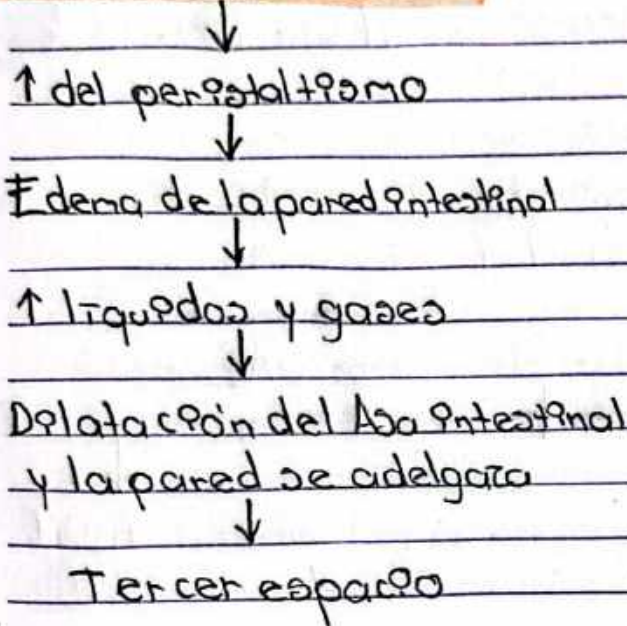 ↓
↑ del peristaltismo
↓
Edema de la pared intestinal
↓
↑ líquidos y gases
↓
Dilatación del Asa intestinal
y la pared se adelgaza
↓
Tercer espacio